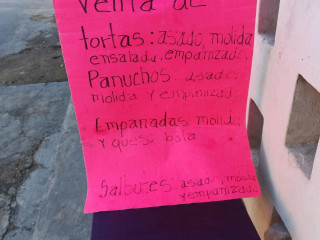 Venta de
tortas: asado, molida
ensalada, empanizado.
Panuchos asado,
molida y empanizad
Empanadas molida
y queso bola
Salbutes asado, molida
y empanizado